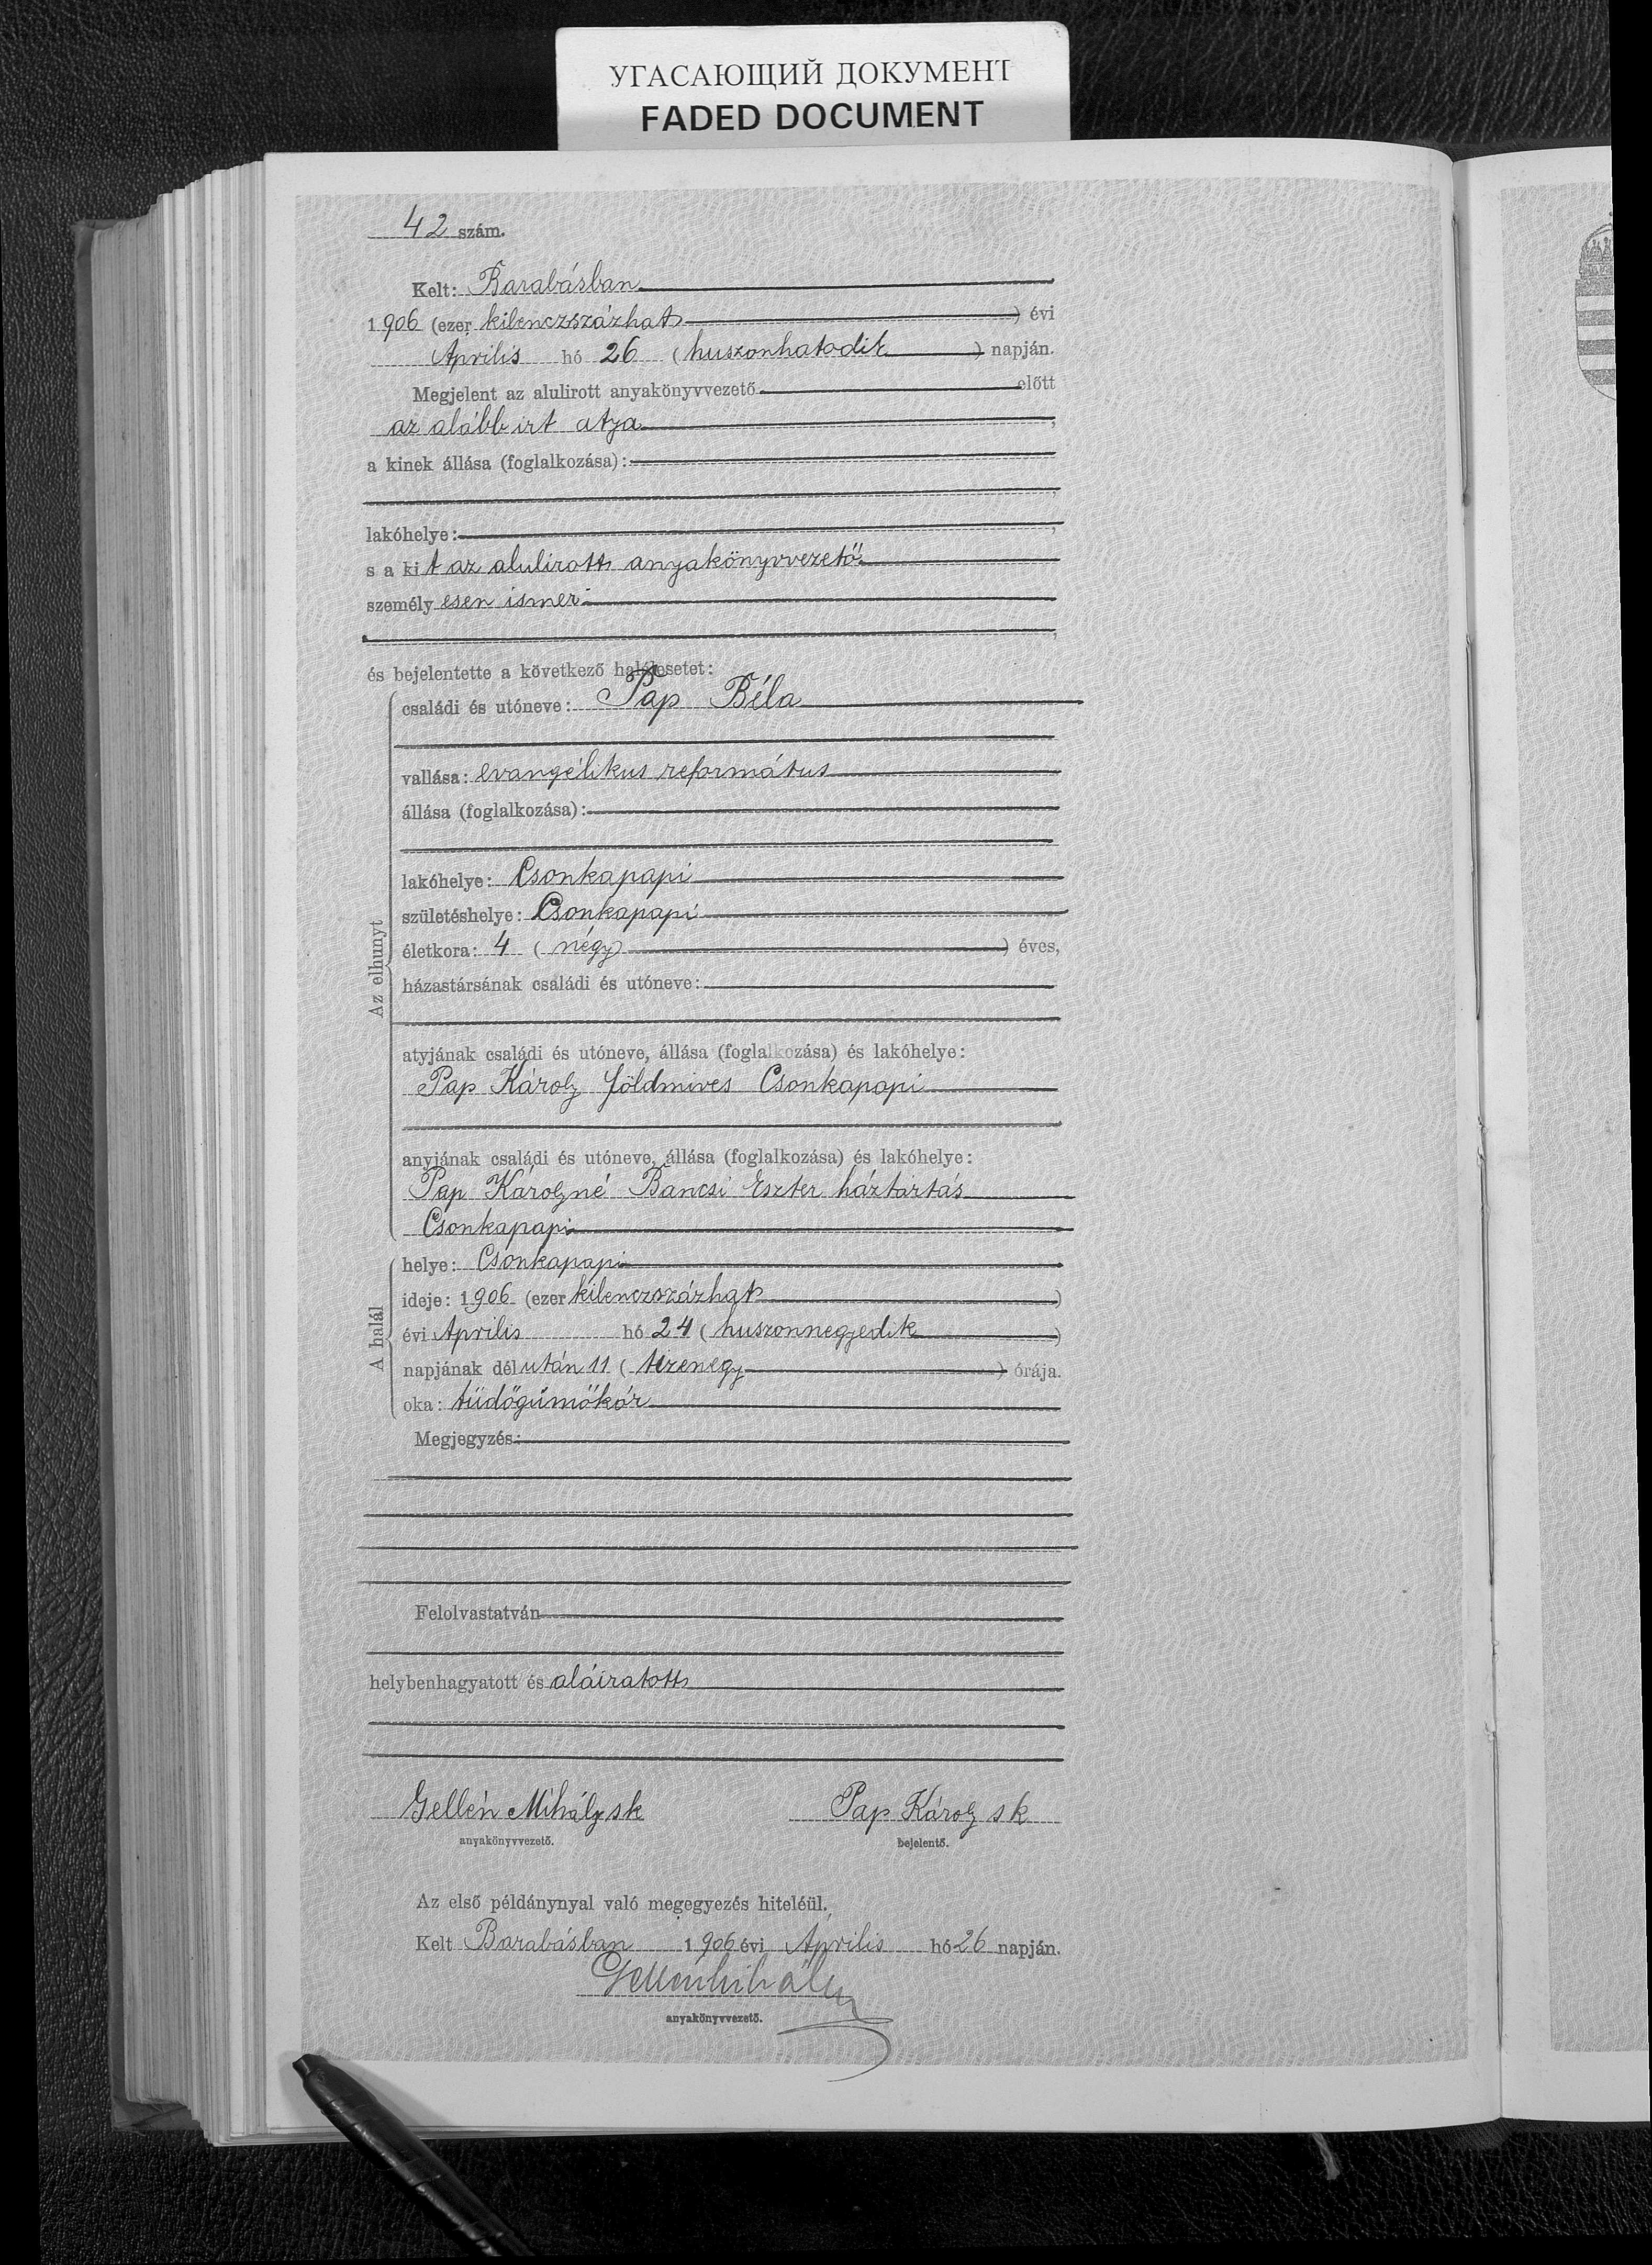 УГАСАЮЩИЙ ДОКУМЕНТ
FADED DOCUMENT
42 szám.
Kelt: Barabásban
1906 (ezer kilenczszázhat) évi
Április hó 26 (huszonhatodik) napján.
Megjelent az alulirott anyakönyvvezető előtt
az alább irt atya,
a kinek állása (foglalkozása):
lakóhelye:
s a kit az alulirott anyakönyvvezető
személyesen ismer
és bejelentette a következő halálesetet:
Az elhunyt
családi és utóneve: Pap Béla
vallása: evangélikus református
állása (foglalkozása):
lakóhelye: Csonkapapi
születéshelye: Csonkapapi
életkora: 4 (négy) éves,
házastársának családi és utóneve:
atyjának családi és utóneve, állása (foglalkozása) és lakóhelye:
Pap Károly földmives Csonkapapi
anyjának családi és utóneve, állása (foglalkozása) és lakóhelye:
Pap Károlyné Bancsi Eszter háztartás
Csonkapapi
A halál
helye: Csonkapapi
ideje: 1906 (ezer kilenczszázhat)
évi Április hó 24 (huszonnegyedik)
napjának délután 11 (tizenegy) órája.
oka: tüdőgümőkór
Megjegyzés:
Felolvastatván
helybenhagyatott és aláiratott
Gellén Mihály sk Pap Károly sk
anyakönyvvezető. bejelentő.
Az első példánynyal való megegyezés hiteléül.
Kelt Barabásban 1906 évi Április hó 26 napján.
Gellén Mihály
anyakönyvvezető.